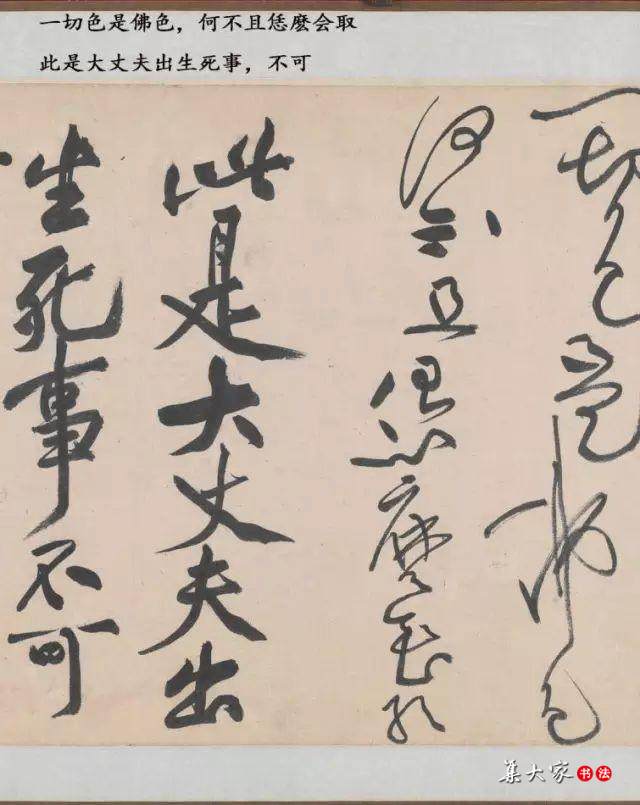 一切色是佛色，何不且恁麽会取
此是大丈夫出生死事，不可
一切色是佛色
何不且恁麼會取
此是大丈夫出
生死事不可
集大家 书法